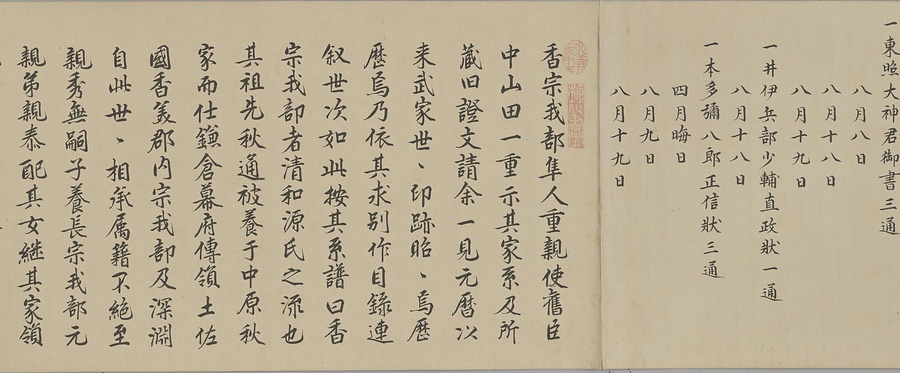 一東照大神君御書三通
八月八日
八月十八日
八月十九日
一井伊兵部少輔直政狀一通
八月十八日
一本多彌八郎正信狀三通
四月晦日
八月九日
八月十九日
香宗我部隼人重親使舊臣
中山田一重示其家系及所
藏旧證文請余一見元暦以
来武家世〻印跡昭〻焉歴
歴焉乃依其求別作目録連
叙世次如此按其系譜曰香
宗我部者清和源氏之流也
其祖先秋通被養于中原秋
家而仕鎌倉幕府傳領土佐
國香美郡内宗我部及深淵
自此世〻相承属籍不絶至
親秀無嗣子養長宗我部元
親弟親泰配其女継其家領